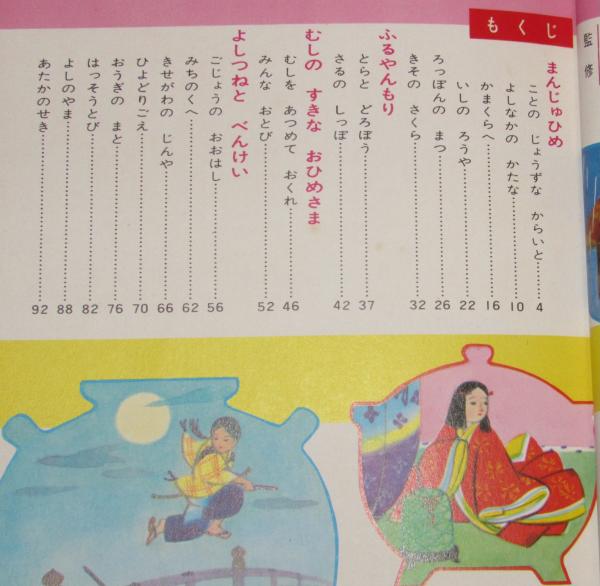 監修
もくじ
まんじゅひめ
ことの じょうずな からいと 4
よしなかの かたな 10
かまくらへ 16
いしの ろうや 22
ろっぽんの まつ 26
きその さくら 32
ふるやんもり
とらと どろぼう 37
さるの しっぽ 42
むしの すきな おひめさま
むしを あつめて おくれ 46
みんな おとび 52
よしつねと べんけい
ごじょうの おおはし 56
みちのくへ 62
きせがわの じんや 66
ひよどりごえ 70
おうぎの まと 76
はっそうとび 82
よしのやま 88
あたかのせき 92